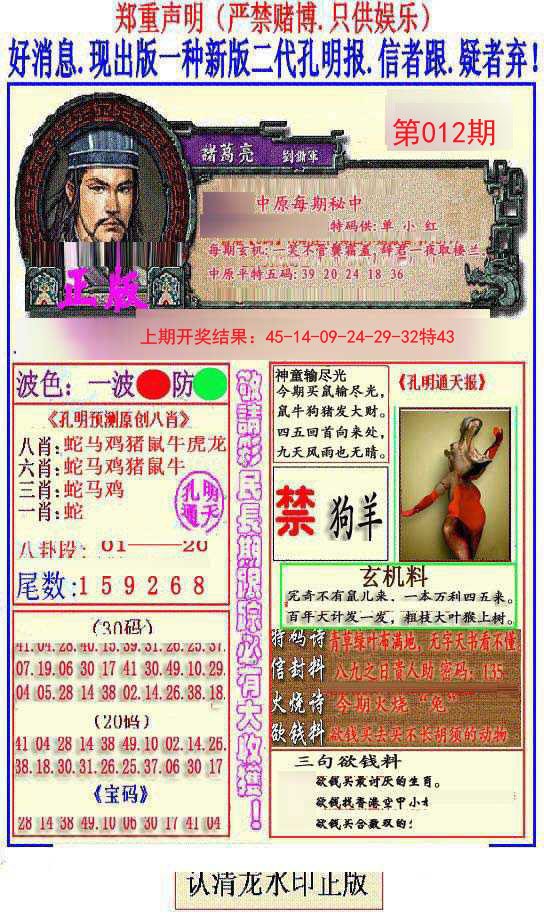 郑重声明（严禁赌博.只供娱乐）
好消息.现出版一种新版二代孔明报.信者跟.疑者弃!
第012期
諸葛亮 劉備軍
中原每期秘中
特码供:单 小 红
每期玄机:一笑不管 ,辞君一夜取楼兰
中原平特五码: 39 20 24 18 36
正版
上期开奖结果：45-14-09-24-29-32特43
波色：一波 防
《孔明预测原创八肖》
八肖:蛇马鸡猪鼠牛虎龙
六肖:蛇马鸡猪鼠牛
三肖:蛇马鸡
一肖:蛇
孔明
通天
八卦段：01——20
尾数:159268
敬請彩民長期跟踪必有大收獲！
神童输尽光
今期买鼠输尽光，
鼠牛狗猪发大财。
四五回首向来处，
九天风雨也无晴。
《孔明通天报》
禁 狗羊
玄机料
完奇不有鼠儿来，一本万利四五来。
百年大计发一发，粗枝大叶猴上树。
特码诗 青草绿叶布满地，无字天书看不懂
信封料 八九之日贵人助 密码：135
火烧诗 今期火烧“兔”
欲钱料 欲钱买去买不长胡须的动物
三句欲钱料
欲钱买最讨厌的生肖。
欲钱找香港空甲小
欲钱买合数双的:
(30码)
41.04.28.40.15.39.31.26.25.37
07.19.06 30 17 41 30.49.10.29
04 05.28 14 38 02.14.26.38.18
(20码)
41 04 28 14 38 49.10 02.14.26.
38.18.30.31.26.25.37 06 30 17
《宝码》
28 14 38 49.10 06 30 17 41 04
认清龙水印正版